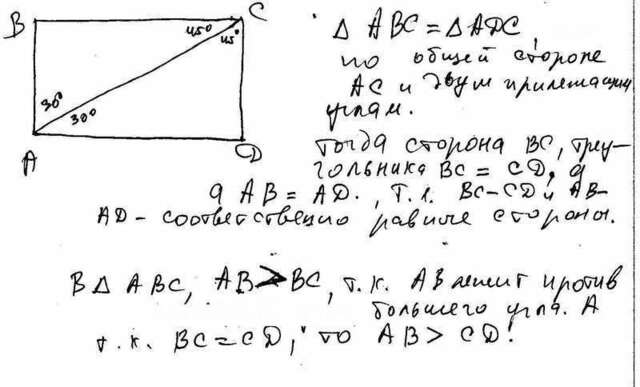 B
C
45°
45°
30°
30°
A
D
Δ ABC = Δ ADC,
по общей стороне
AC и двум прилежащим
углам.
Тогда сторона BC, треу-
гольника BC = CD, а
а AB = AD., т.к. BC-CD и AB-
AD - соответственно равные стороны.
В Δ ABC, AB > BC, т.к. AB лежит против
большего угла. А
т.к. BC = CD, то AB > CD!